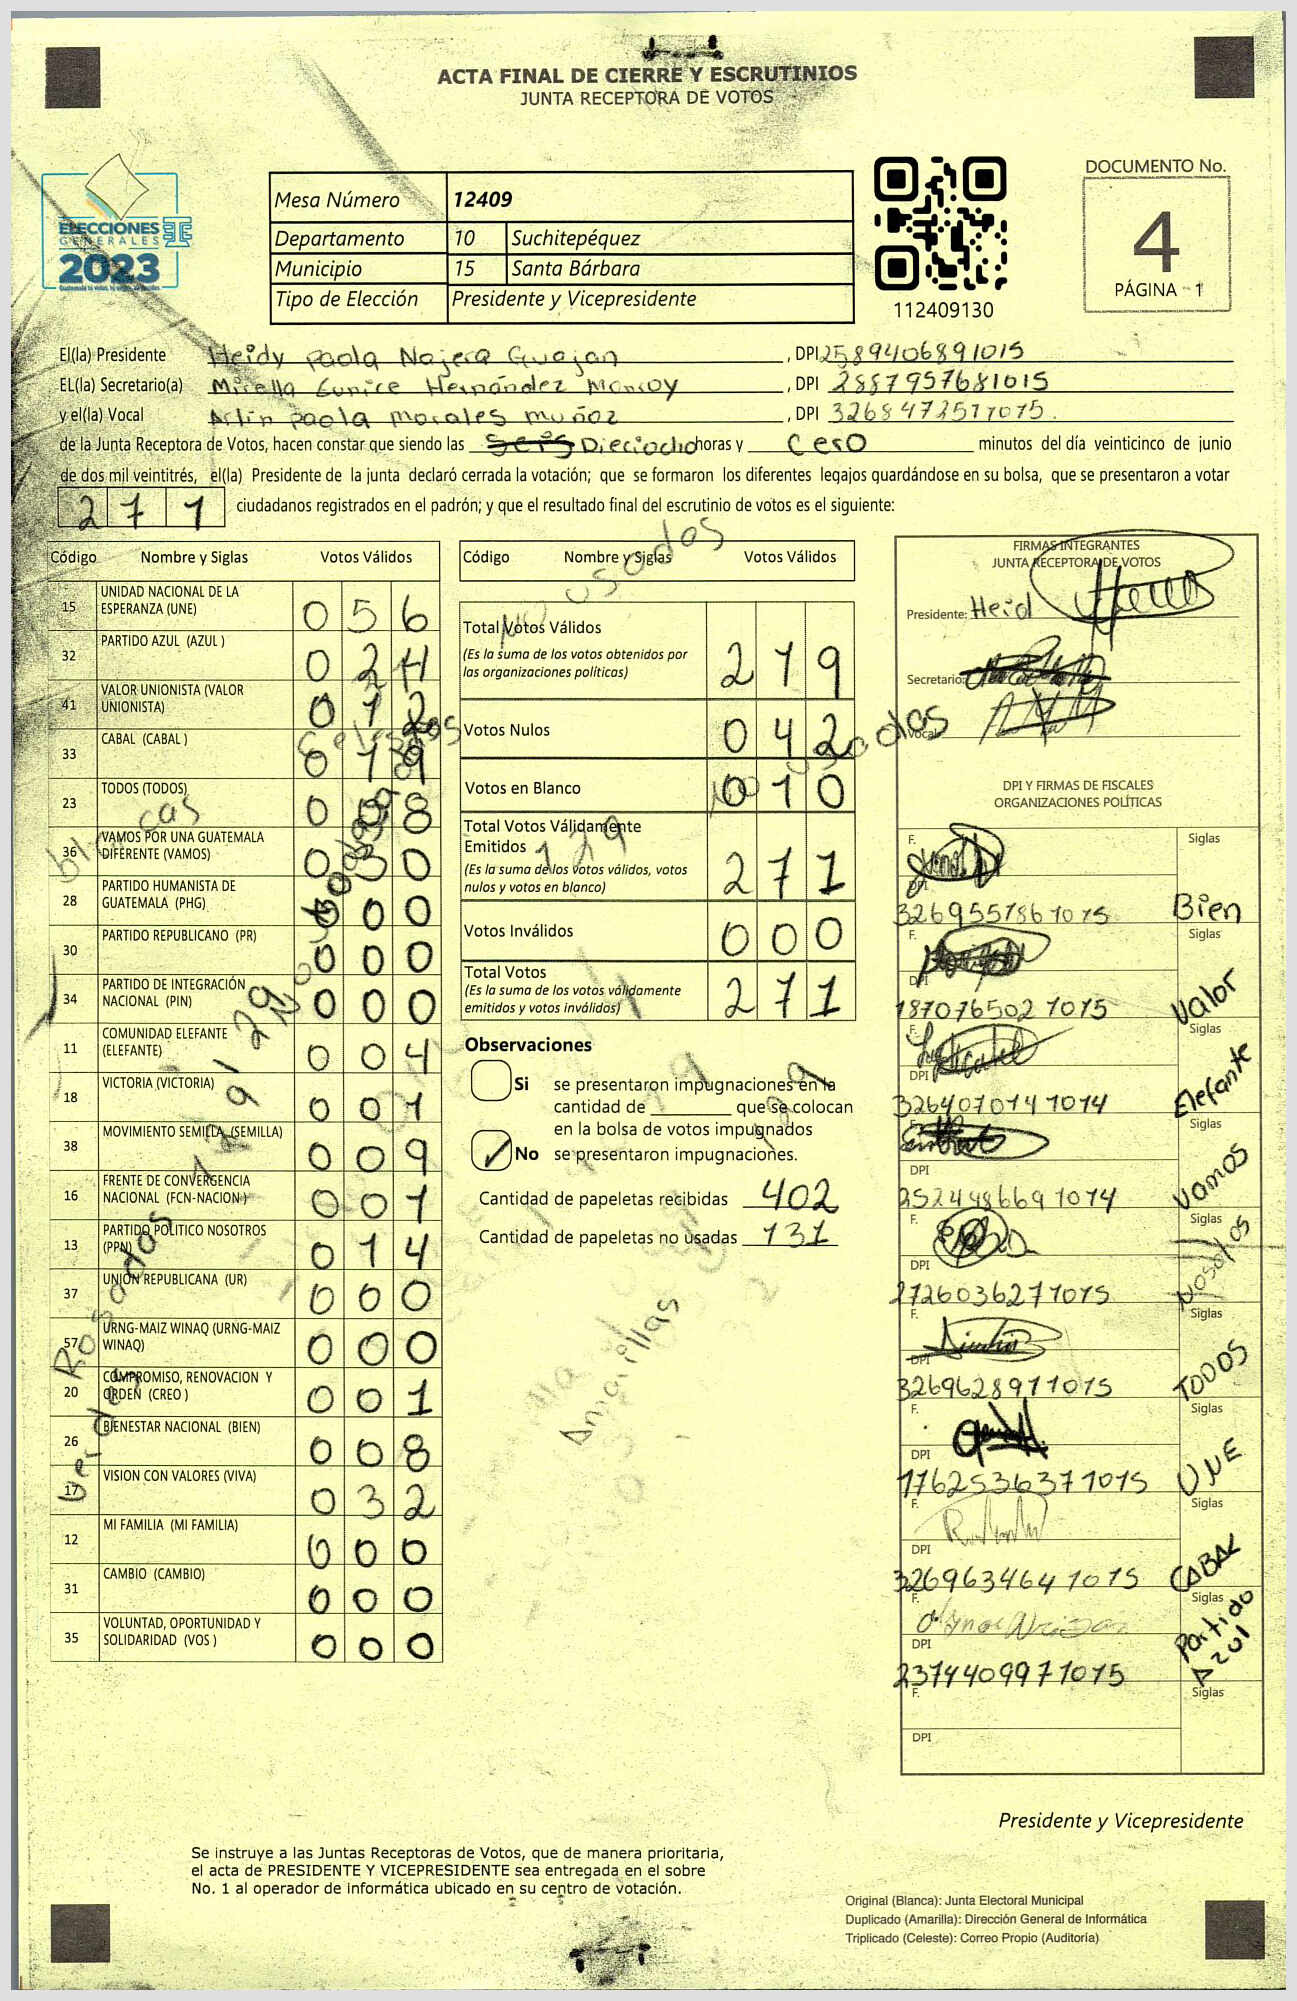 ACTA FINAL DE CIERRE Y ESCRUTINIOS
JUNTA RECEPTORA DE VOTOS
ELECCIONES
GENERALES
2023
Mesa Número 12409
Departamento 10 Suchitepéquez
Municipio 15 Santa Bárbara
Tipo de Elección Presidente y Vicepresidente
112409130
DOCUMENTO No.
4
PÁGINA 1
El(la) Presidente Heidy Paola Najera Guajan, DPI 2589406891015
EL(la) Secretario(a) Mirella Eunice Hernández Monroy, DPI 2887957681015
y el(la) Vocal Arlin Paola Morales Muñoz, DPI
de la Junta Receptora de Votos, hacen constar que siendo las Dieciocho horas y cero minutos del día veinticinco de junio
de dos mil veintitrés, el(la) Presidente de la junta declaró cerrada la votación; que se formaron los diferentes legajos guardándose en su bolsa, que se presentaron a votar
271 ciudadanos registrados en el padrón; y que el resultado final del escrutinio de votos es el siguiente:
Código Nombre y Siglas Votos Válidos
15 UNIDAD NACIONAL DE LA ESPERANZA (UNE) 056
32 PARTIDO AZUL (AZUL ) 024
41 VALOR UNIONISTA (VALOR UNIONISTA) 012
33 CABAL (CABAL ) 019
23 TODOS (TODOS) 008
36 VAMOS POR UNA GUATEMALA DIFERENTE (VAMOS) 030
28 PARTIDO HUMANISTA DE GUATEMALA (PHG) 000
30 PARTIDO REPUBLICANO (PR) 000
34 PARTIDO DE INTEGRACIÓN NACIONAL (PIN) 000
11 COMUNIDAD ELEFANTE (ELEFANTE) 004
18 VICTORIA (VICTORIA) 001
38 MOVIMIENTO SEMILLA (SEMILLA) 009
16 FRENTE DE CONVERGENCIA NACIONAL (FCN-NACION ) 001
13 PARTIDO POLITICO NOSOTROS (PPN) 014
37 UNION REPUBLICANA (UR) 000
57 URNG-MAIZ WINAQ (URNG-MAIZ WINAQ) 000
20 COMPROMISO, RENOVACION Y ORDEN (CREO ) 001
26 BIENESTAR NACIONAL (BIEN) 008
17 VISION CON VALORES (VIVA) 032
12 MI FAMILIA (MI FAMILIA) 000
31 CAMBIO (CAMBIO) 000
35 VOLUNTAD, OPORTUNIDAD Y SOLIDARIDAD (VOS ) 000
blancas
Verdes
Rosados
129
Código Nombre y Siglas Votos Válidos
No usados
Total Votos Válidos
(Es la suma de los votos obtenidos por
las organizaciones políticas)
219
Votos Nulos 042
Votos en Blanco 010
Total Votos Válidamente
Emitidos
(Es la suma de los votos válidos, votos
nulos y votos en blanco)
271
129
Votos Inválidos 000
Total Votos
(Es la suma de los votos válidamente
emitidos y votos inválidos)
271
Observaciones
Si se presentaron impugnaciones en la
cantidad de ________ que se colocan
en la bolsa de votos impugnados
No se presentaron impugnaciones.
Cantidad de papeletas recibidas 402
Cantidad de papeletas no usadas 131
Amarillas
FIRMAS INTEGRANTES
JUNTA RECEPTORA DE VOTOS
Presidente: Heid
Secretario:
Vocal:
DPI Y FIRMAS DE FISCALES
ORGANIZACIONES POLÍTICAS
F. Siglas
DPI
3269557861015 Bien
F. Siglas
DPI
1870765021015 Valor
F. Siglas
DPI
3264070141014 Elefante
Siglas
DPI
2524486691014 Vamos
F. Siglas
DPI
2726036271015 Nosotros
F. Siglas
DPI
3269628911015 TODOS
F. Siglas
DPI
1762536371015 UNE
F. Siglas
DPI
3269634641015 CABAL
F. Siglas
DPI
2374409971015 Partido Azul
F. Siglas
DPI
Presidente y Vicepresidente
Se instruye a las Juntas Receptoras de Votos, que de manera prioritaria,
el acta de PRESIDENTE Y VICEPRESIDENTE sea entregada en el sobre
No. 1 al operador de informática ubicado en su centro de votación.
Original (Blanca): Junta Electoral Municipal
Duplicado (Amarilla): Dirección General de Informática
Triplicado (Celeste): Correo Propio (Auditoría)